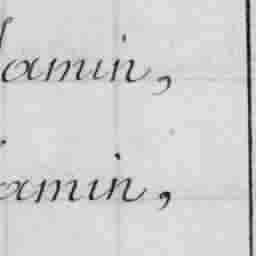 amin,
amin,